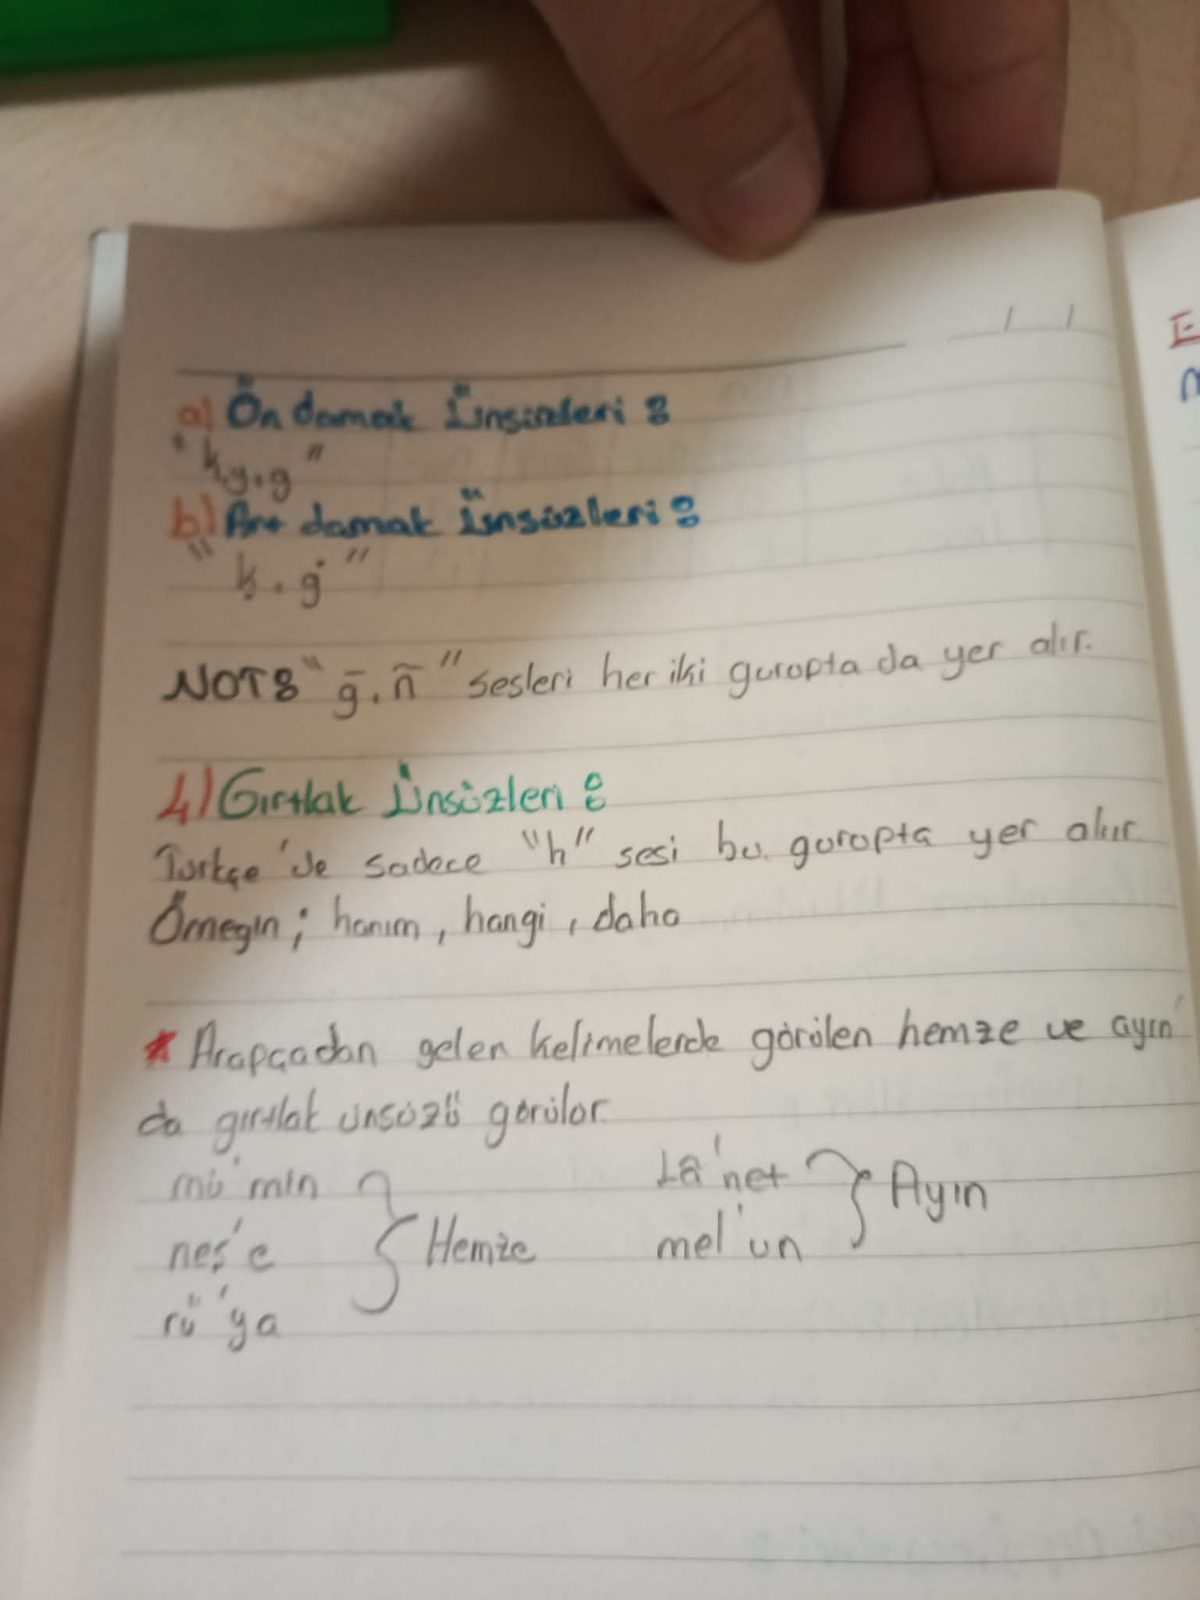 a) Ön damak Ünsüzleri :
"k, y, g"
b) Art damak Ünsüzleri :
"ḳ, ġ"
NOT: "ḡ, ñ" sesleri her iki guropta da yer alır.
4) Gırtlak Ünsüzleri :
Türkçe'de sadece "h" sesi bu guropta yer alır
Örnegin; hanım, hangi, daha
* Arapçadan gelen kelimelerde görülen hemze ve ayın'
da gırtlak ünsüzü görülür
mü'min
neş'e } Hemze
rü'ya
La'net
mel'un } Ayın